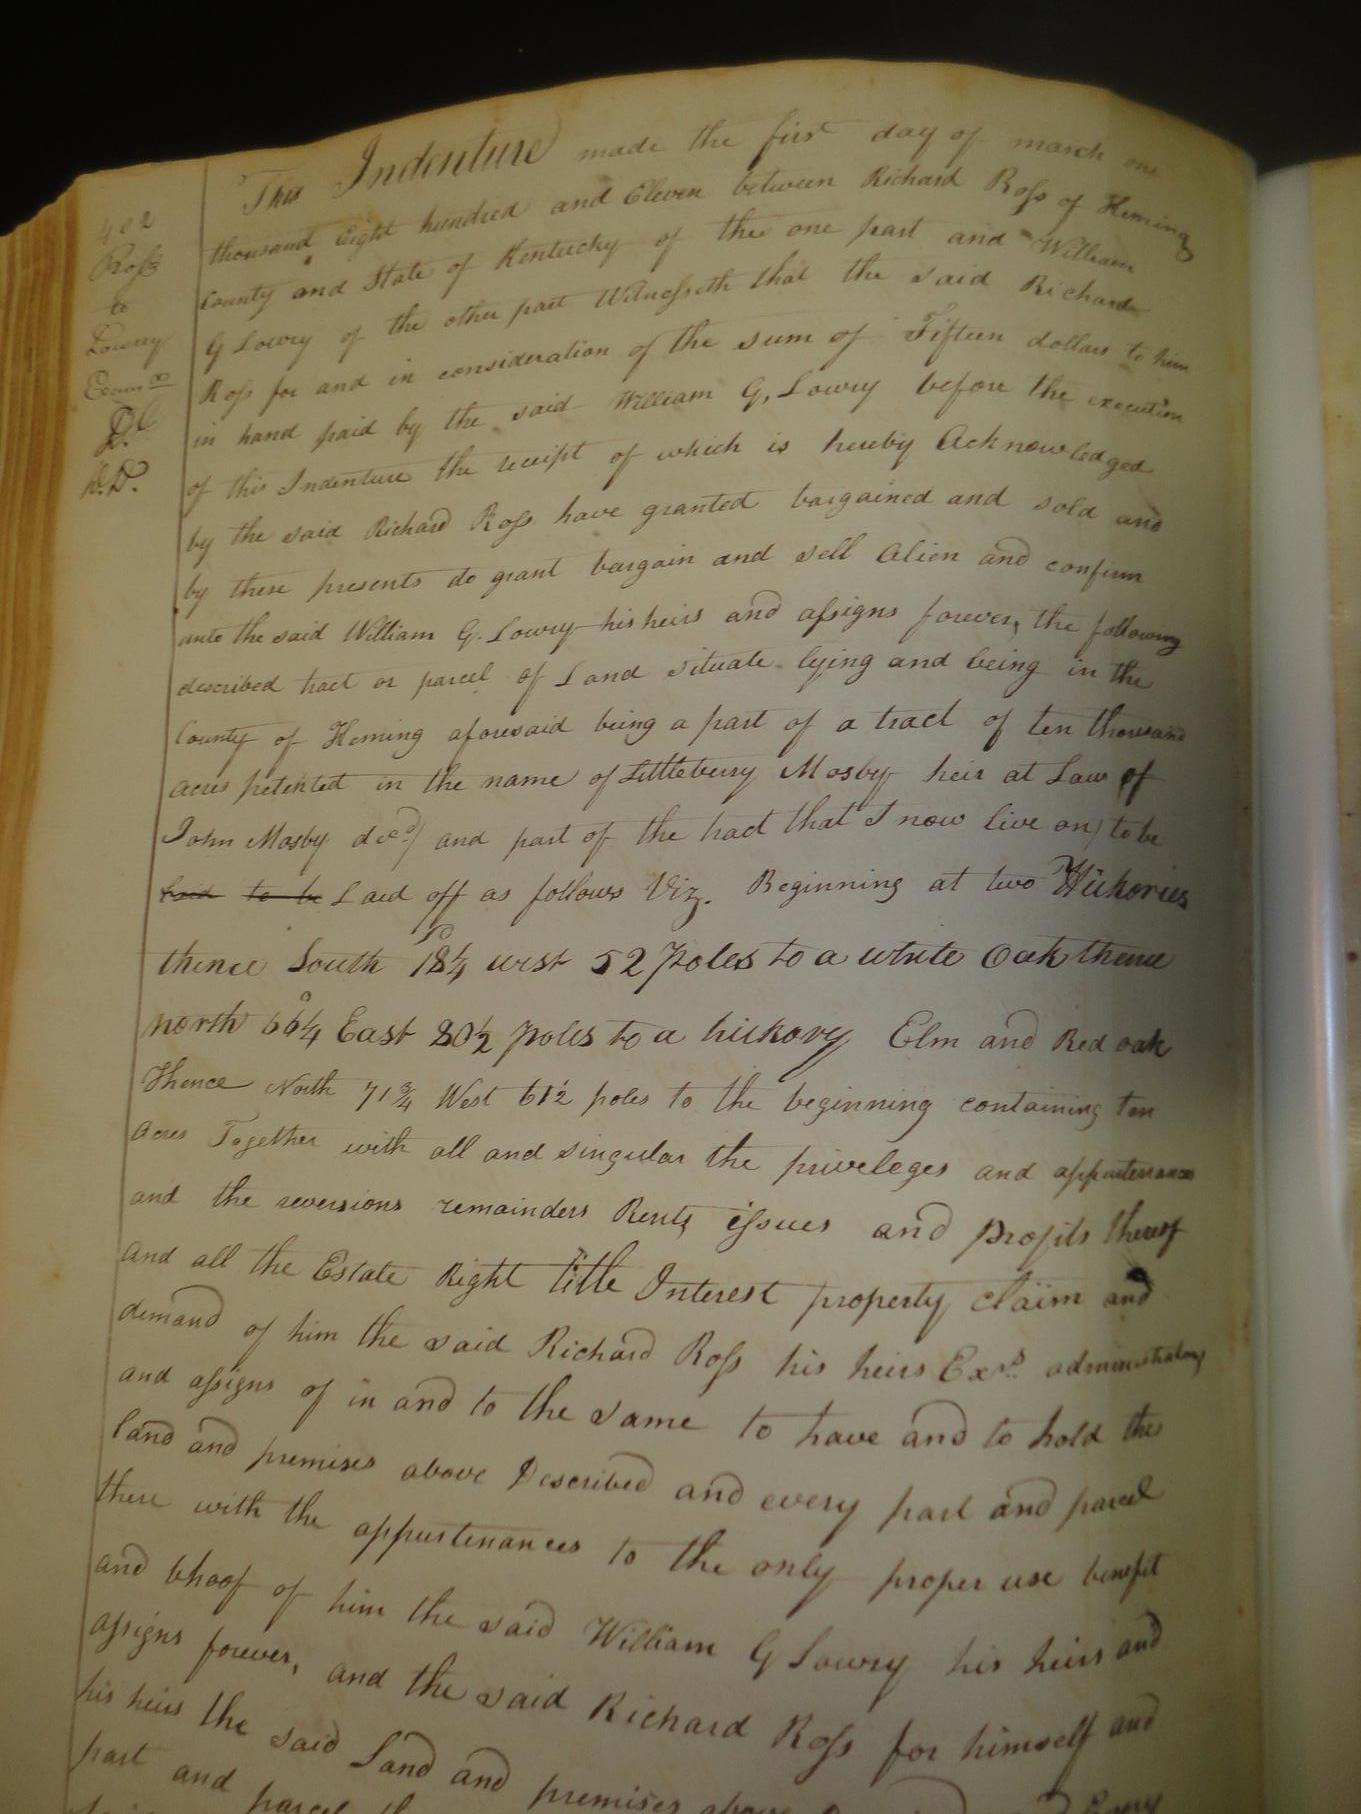 This Indenture made the first day of march one
thousand Eight hundred and Eleven between Richard Ross of Fleming
County and State of Kentucky of the one part and William
G Lowry of the other part Witnesseth that the said Richard
Ross for and in consideration of the sum of Fifteen dollars to him
in hand paid by the said William G, Lowry before the execution
of this Indenture the receipt of which is hereby Acknowledged
by the said Richard Ross have granted bargained and sold and
by these presents do grant bargain and sell Alien and confirm
unto the said William G. Lowry his heirs and assigns forever, the following
described tract or parcel of Land situate lying and being in the
County of Fleming aforesaid being a part of a tract of ten thousand
acres petented in the name of Littleberry Mosby heir at Law of
John Mosby decd) and part of the tract that I now live on) to be
Laid to be Laid off as follows Viz. Beginning at two Hickories
thence South 18¼ west 52 poles to a white Oak thence
north 66¼ East 80½ poles to a hickory Elm and Red oak
Thence North 71¾ West 61½ poles to the beginning containing ten
acres Together with all and singular the priveleges and appurtenances
and the reversions remainders Rents issues and profits thereof
and all the Estate Right title Interest property claim and
demand of him the said Richard Ross his heirs Exrs. administrators
and assigns of in and to the same to have and to hold the
land and premises above Described and every part and parcel
there with the appurtenances to the only proper use benefit
and bhoof of him the said William G Lowry his heirs and
assigns forever, and the said Richard Ross for himself and
his heirs the said Land and premises above
part and parcel
402
Ross
to
Lowry
D.D.